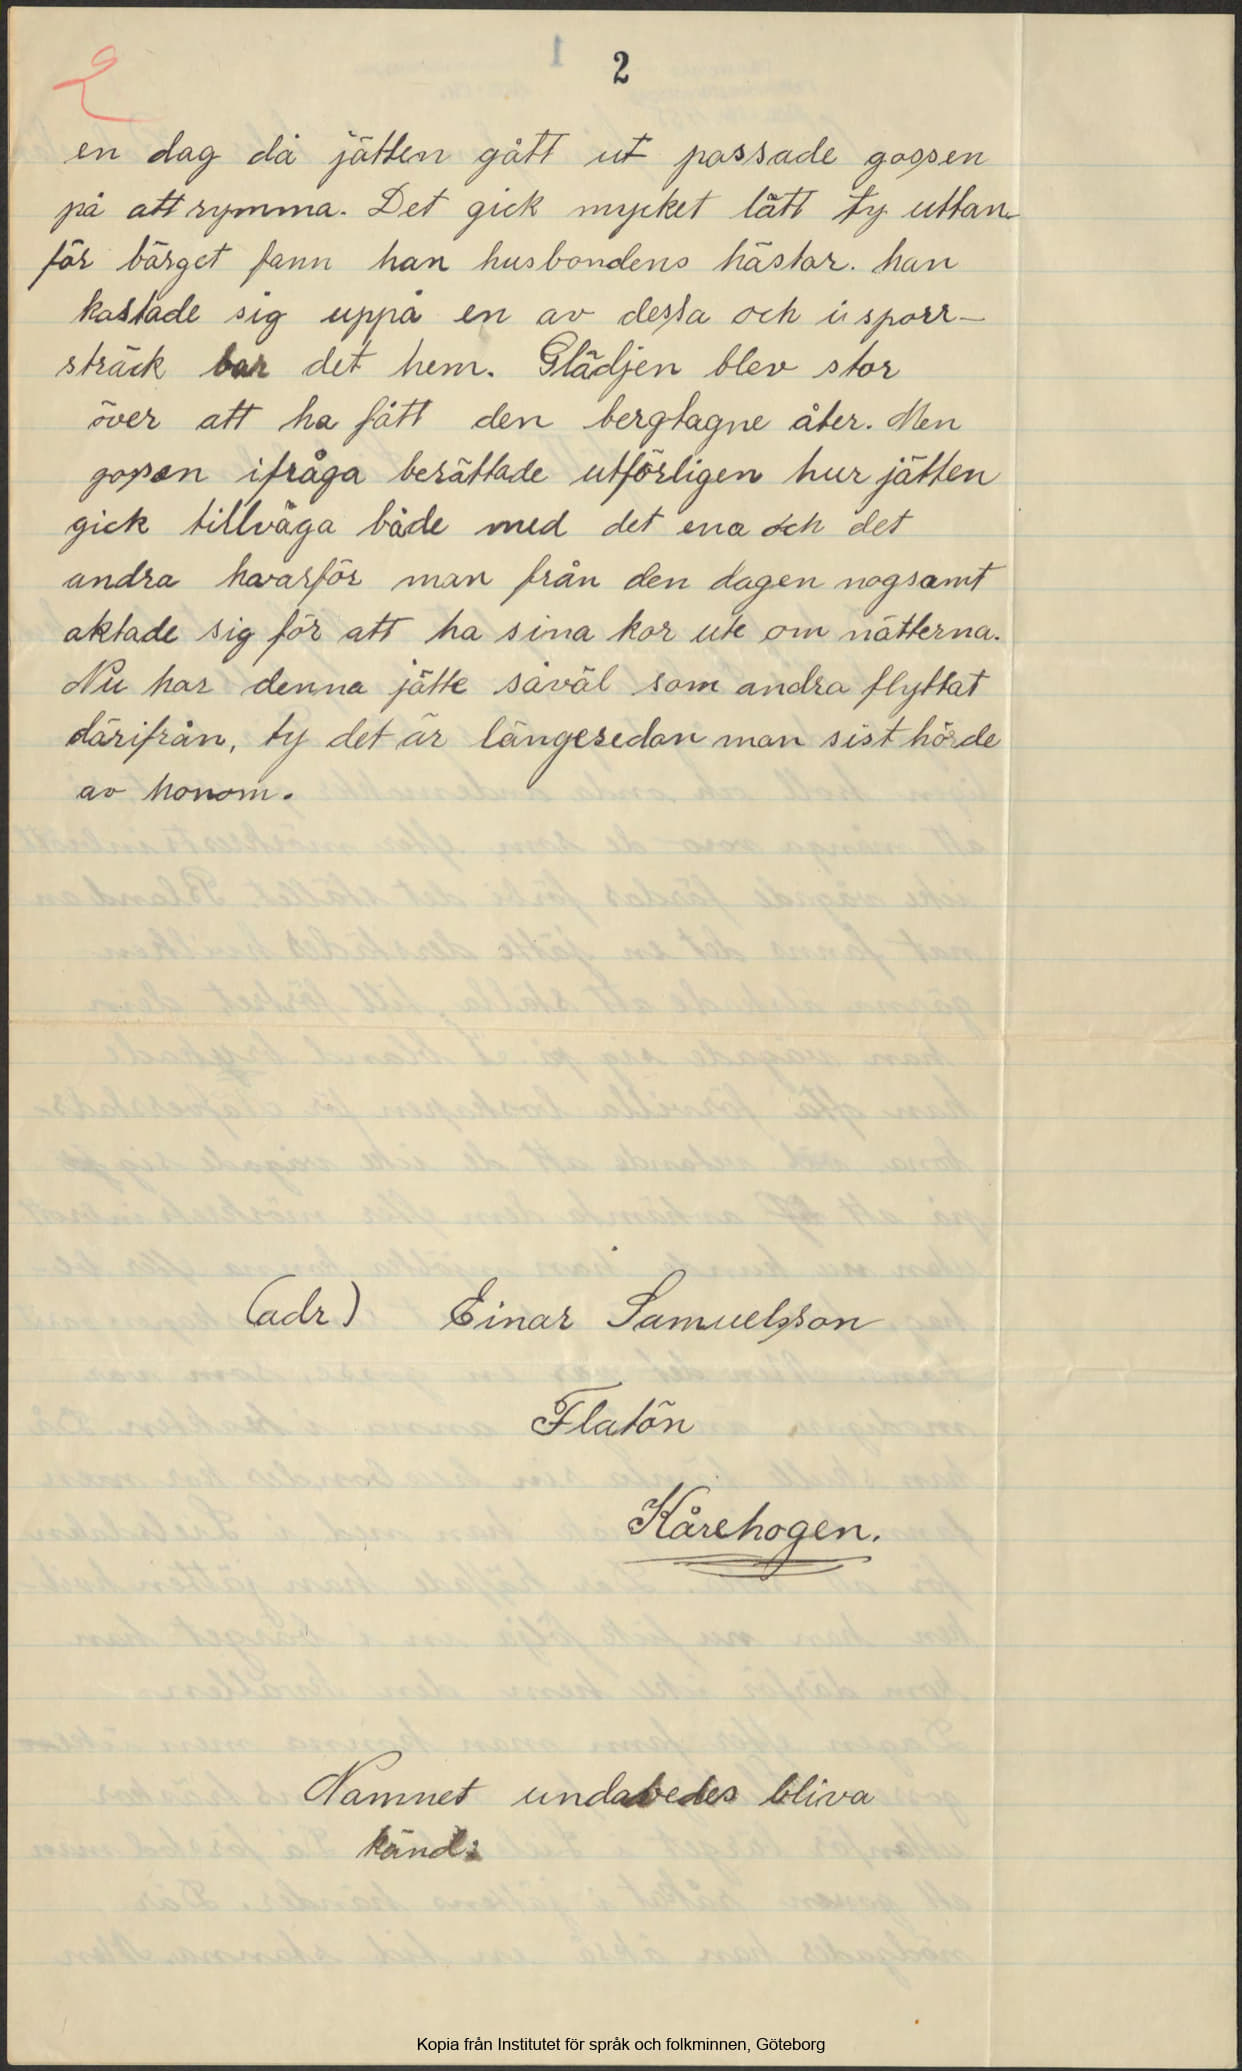 2
en dag då jätten gått ut passade gossen
på att rymma. Det gick mycket lätt ty uttan-
för bärget fann han husbondens hästar. han
kastade sig uppå en av dessa och i sporr-
sträck bar det hem. Glädjen blev stor
över att ha fått den bergtagne åter. Men
gossen ifråga berättade utförligen hur jätten
gick tillväga både med det ena och det
andra havarför man från den dagen nogsamt
aktade sig för att ha sina kor ute om nätterna.
Nu har denna jätte såväl som andra flyttat
därifrån, ty det är längesedan man sist hörde
av honom.
(adr) Einar Samuelsson
Flatön
Kårehogen.
Namnet undabedes bliva
känd.
Kopia från Institutet för språk och folkminnen, Göteborg